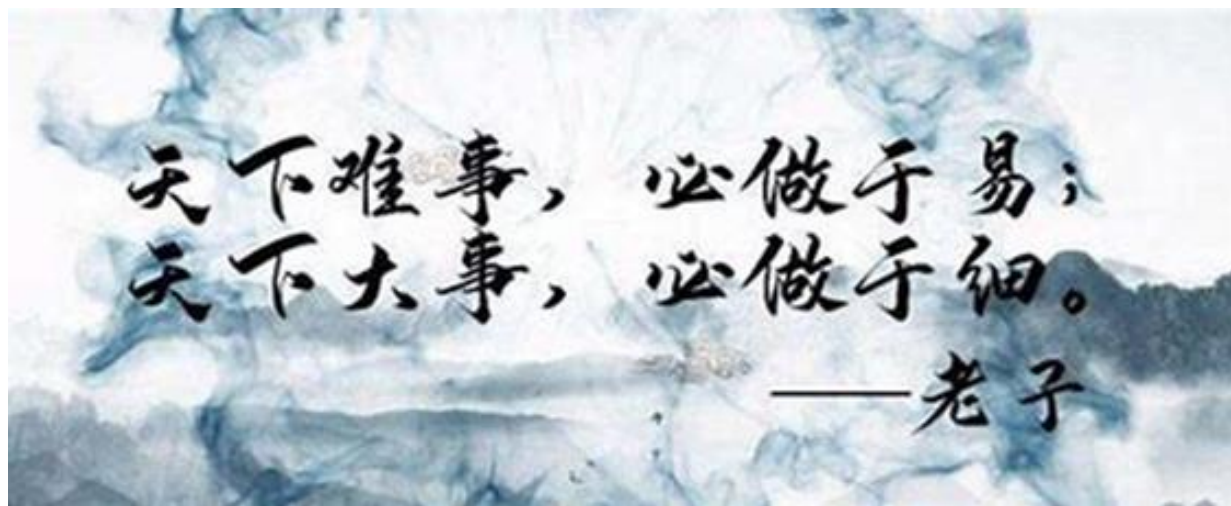 天下难事，必做于易；
天下大事，必做于细。
——老子